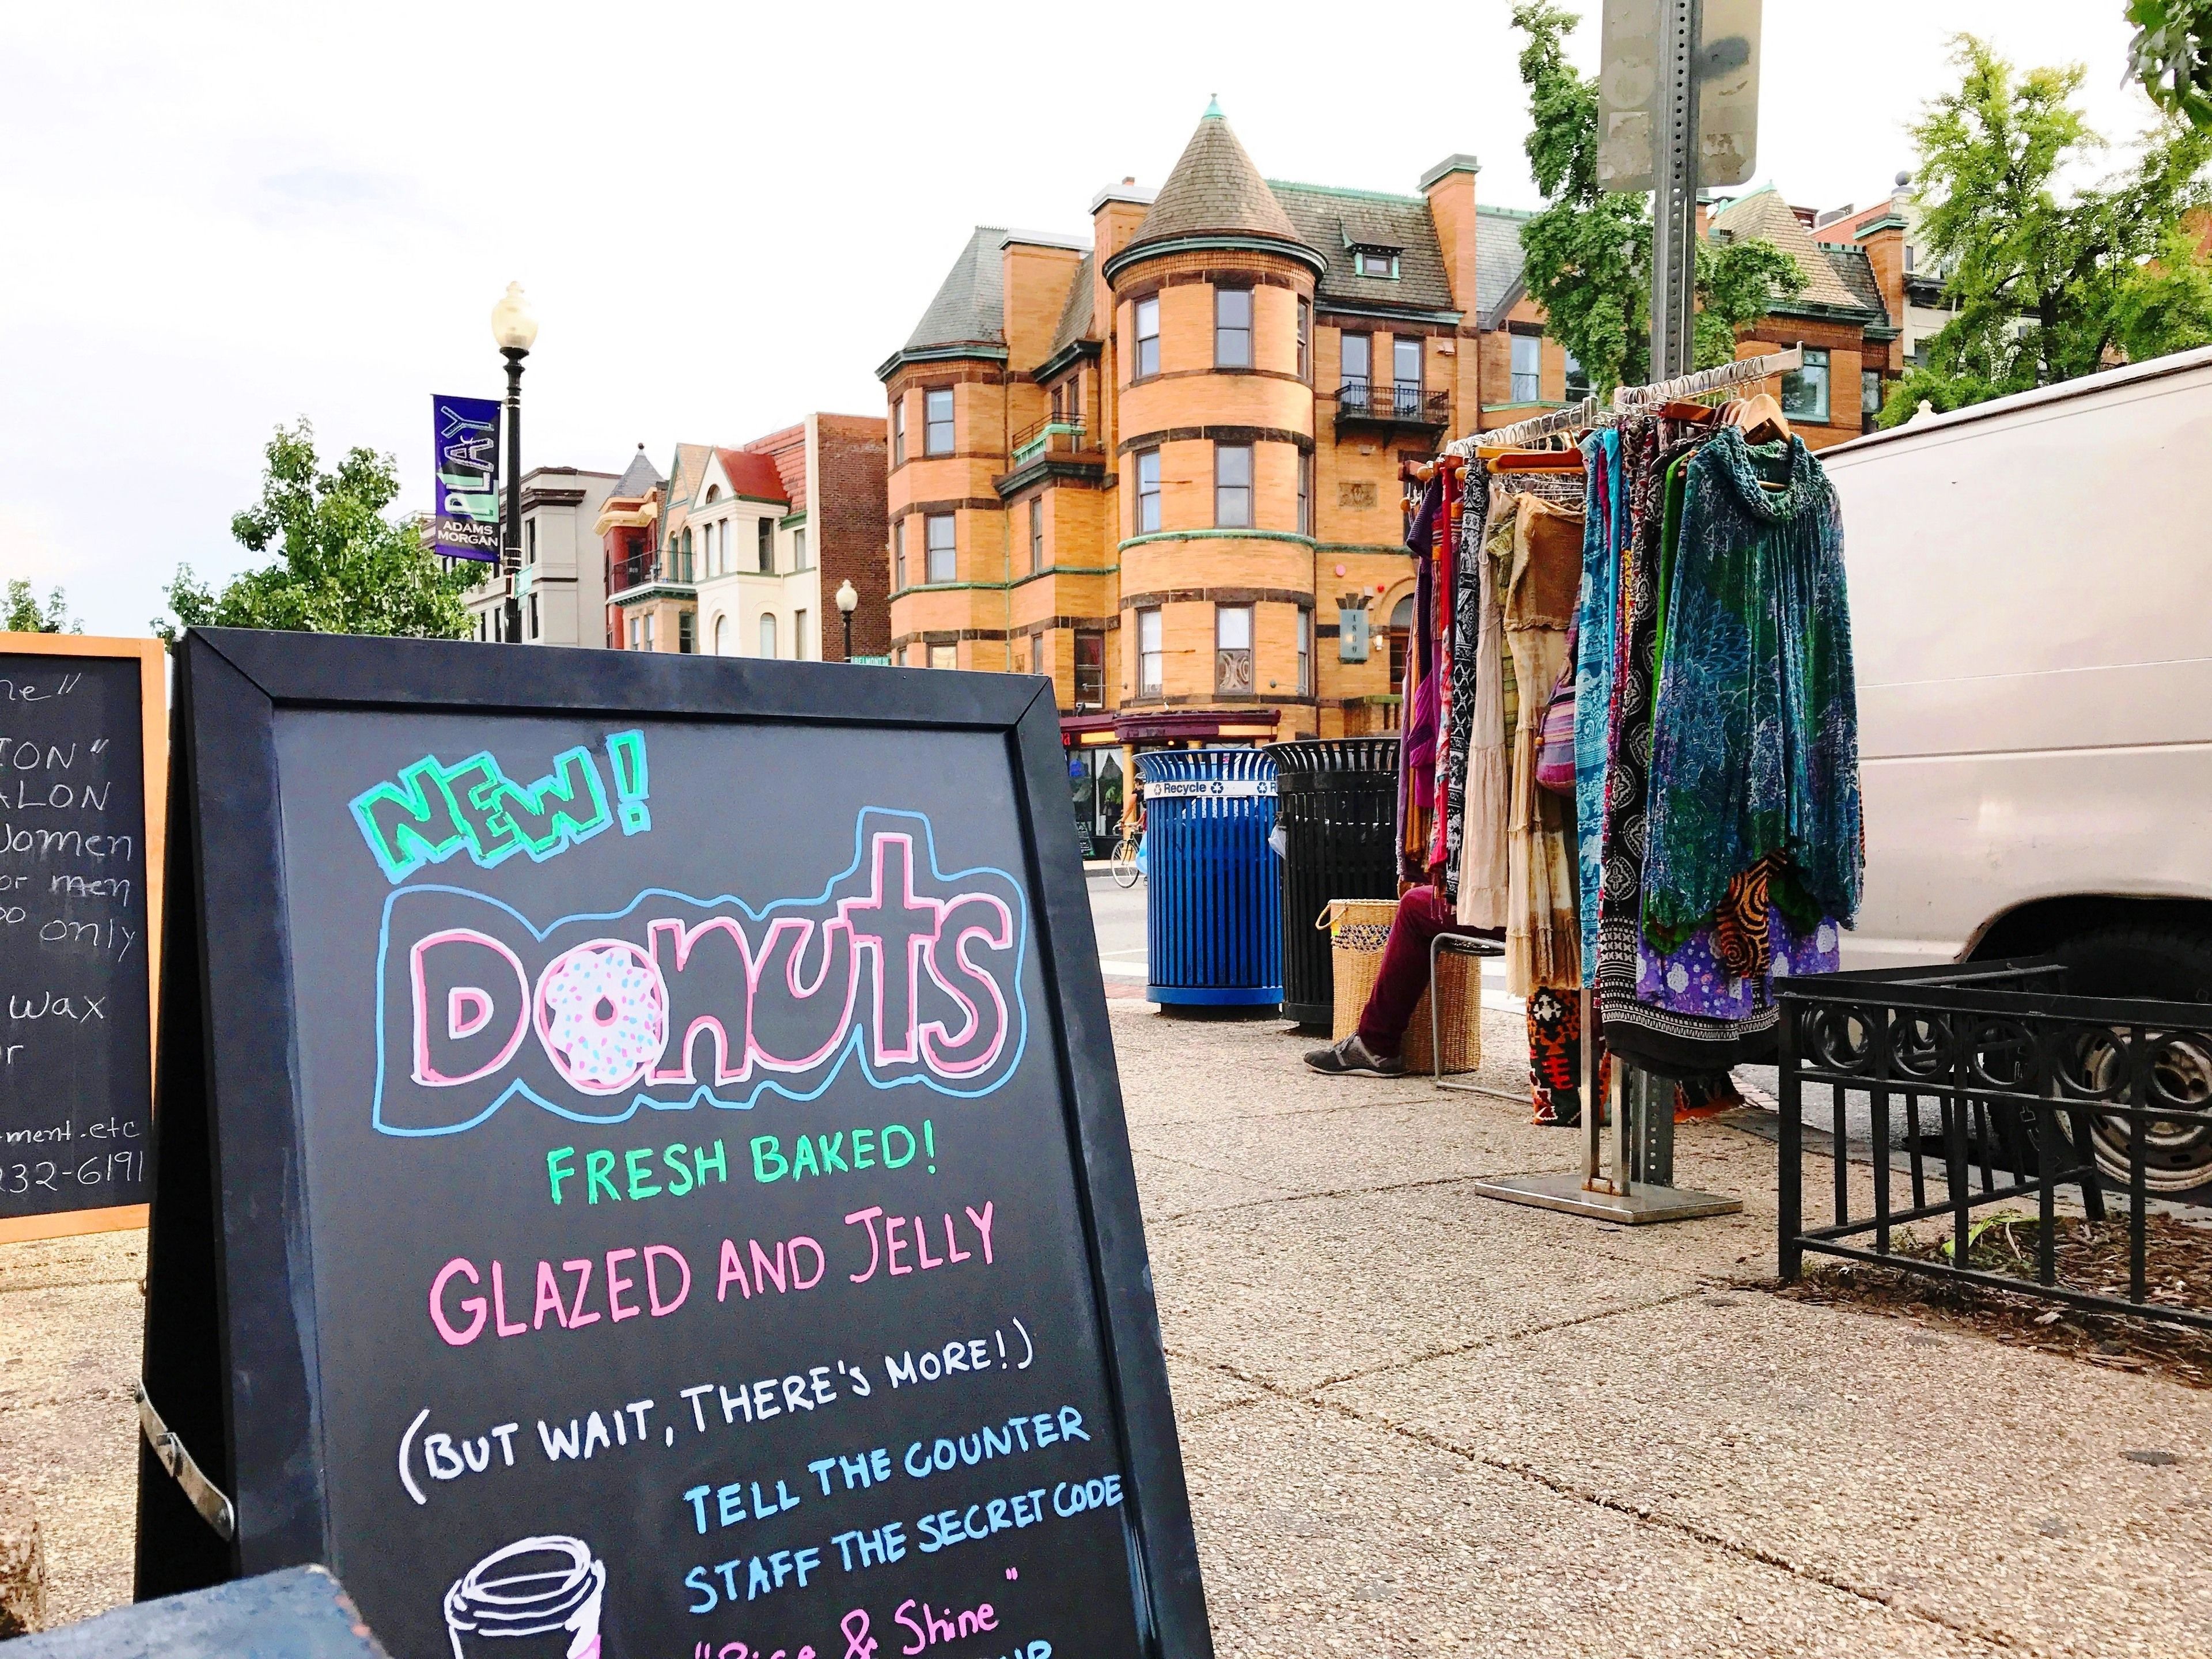 PLAY
ADAMS
MORGAN
ALON
only
wax
ment.etc
232-6191
NEW!
DONUTS
FRESH BAKED!
GLAZED AND JELLY
(BUT WAIT, THERE'S MORE!)
TELL THE COUNTER
STAFF THE SECRET CODE
"Rise & Shine"
Recycle
1880
BELMONT